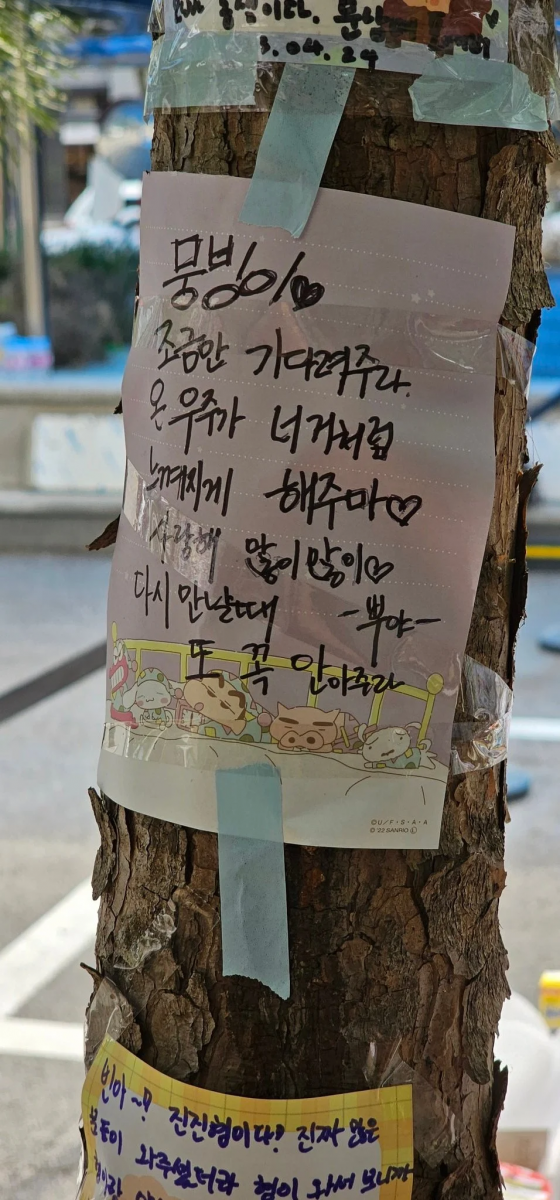 3.04.24
뭉빙이♡
조금만 기다려주라.
온 우주가 너거처럼
느껴지게 해주마♡
사랑해 많이많이♡
다시 만날때 -뿌야-
또 꼭 안아주라
©U/F·S·A·A
©'22 SANRIO Ⓛ
빈아~? 진진형이다? 진짜 많은
분들이 와주셨더라 형이 와서 보니까